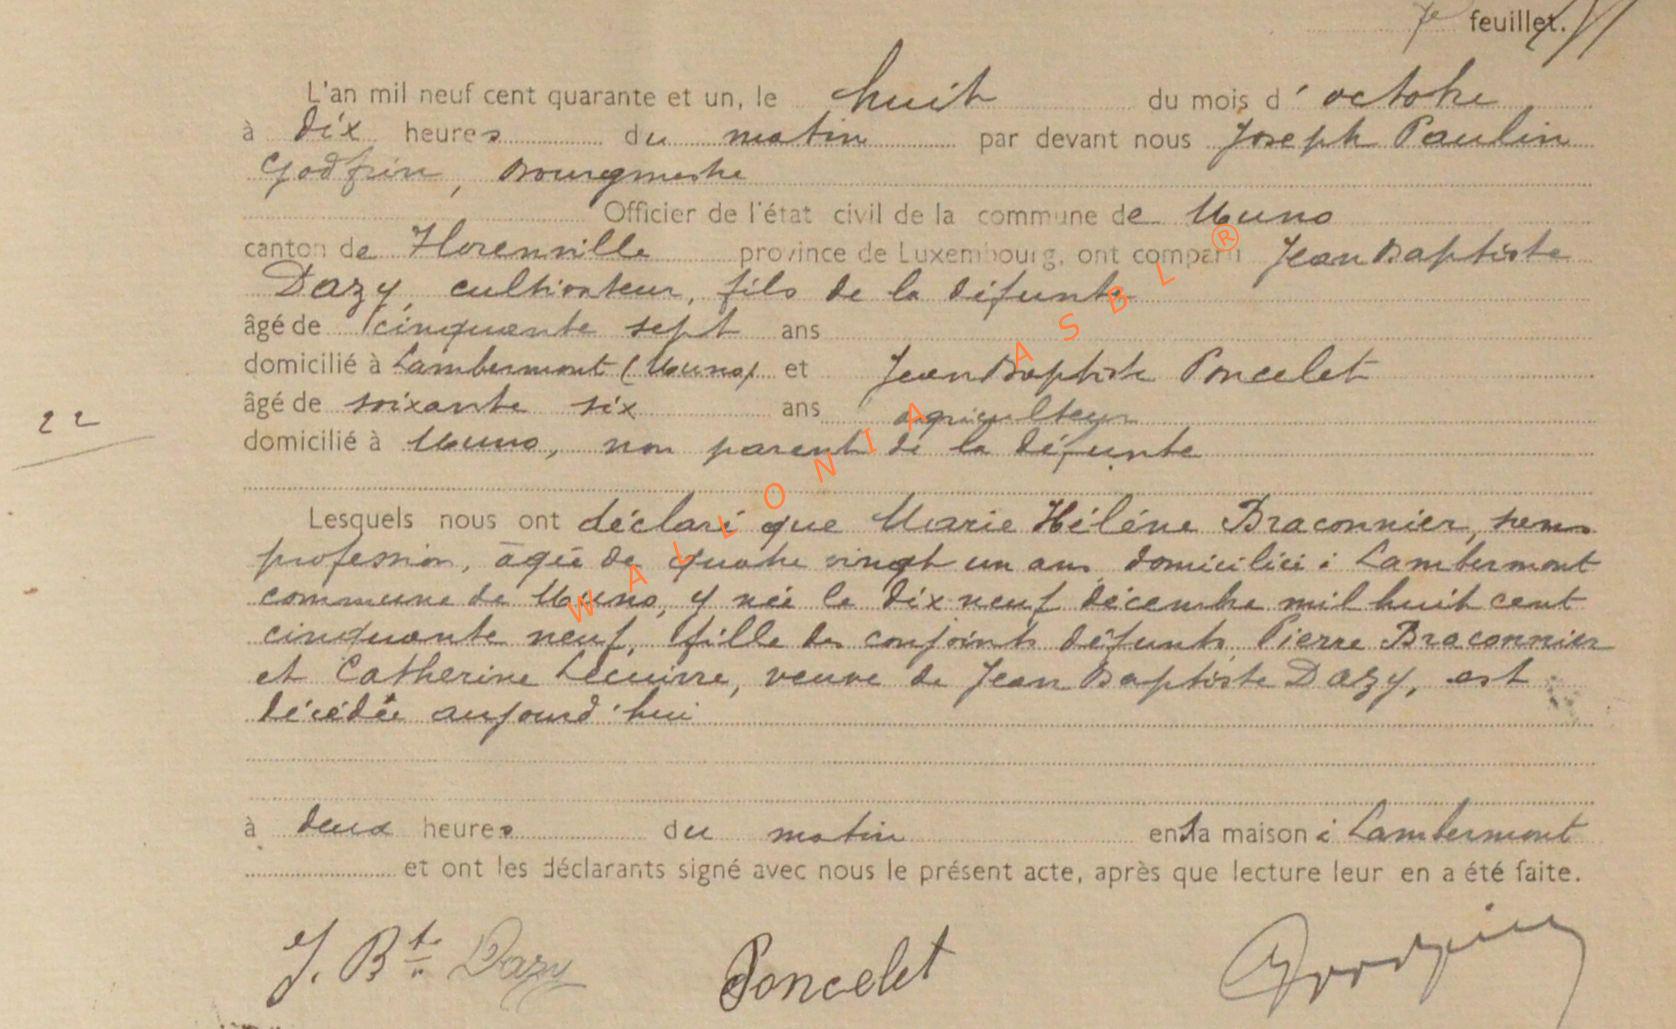 7e feuillet.
L'an mil neuf cent quarante et un, le huit du mois d' octobre
à dix heures du matin par devant nous Joseph Paulin
Godfrin, Bourgmestre
Officier de l'état civil de la commune de Muno
canton de Florenville province de Luxembourg, ont comparu Jean Baptiste
Dazy, cultivateur, fils de la défunte
âgé de cinquante sept ans
domicilié à Lambermont (Muno) et Jean Baptiste Poncelet
âgé de soixante six ans agriculteur
22
domicilié à Muno, non parent de la défunte
Lesquels nous ont déclaré que Marie Hélène Braconnier, sans
profession, âgée de quatre vingt un ans, domiciliée à Lambermont
commune de Muno, y née le dix neuf décembre mil huit cent
cinquante neuf, fille des conjoints défunts Pierre Braconnier
et Catherine Lecuivre, veuve de Jean Baptiste Dazy, est
décédée aujourd'hui
à deux heures du matin en sa maison à Lambermont
et ont les déclarants signé avec nous le présent acte, après que lecture leur en a été faite.
J. Bte Dazy Poncelet Godfrin
WALLONIA ASBL ®